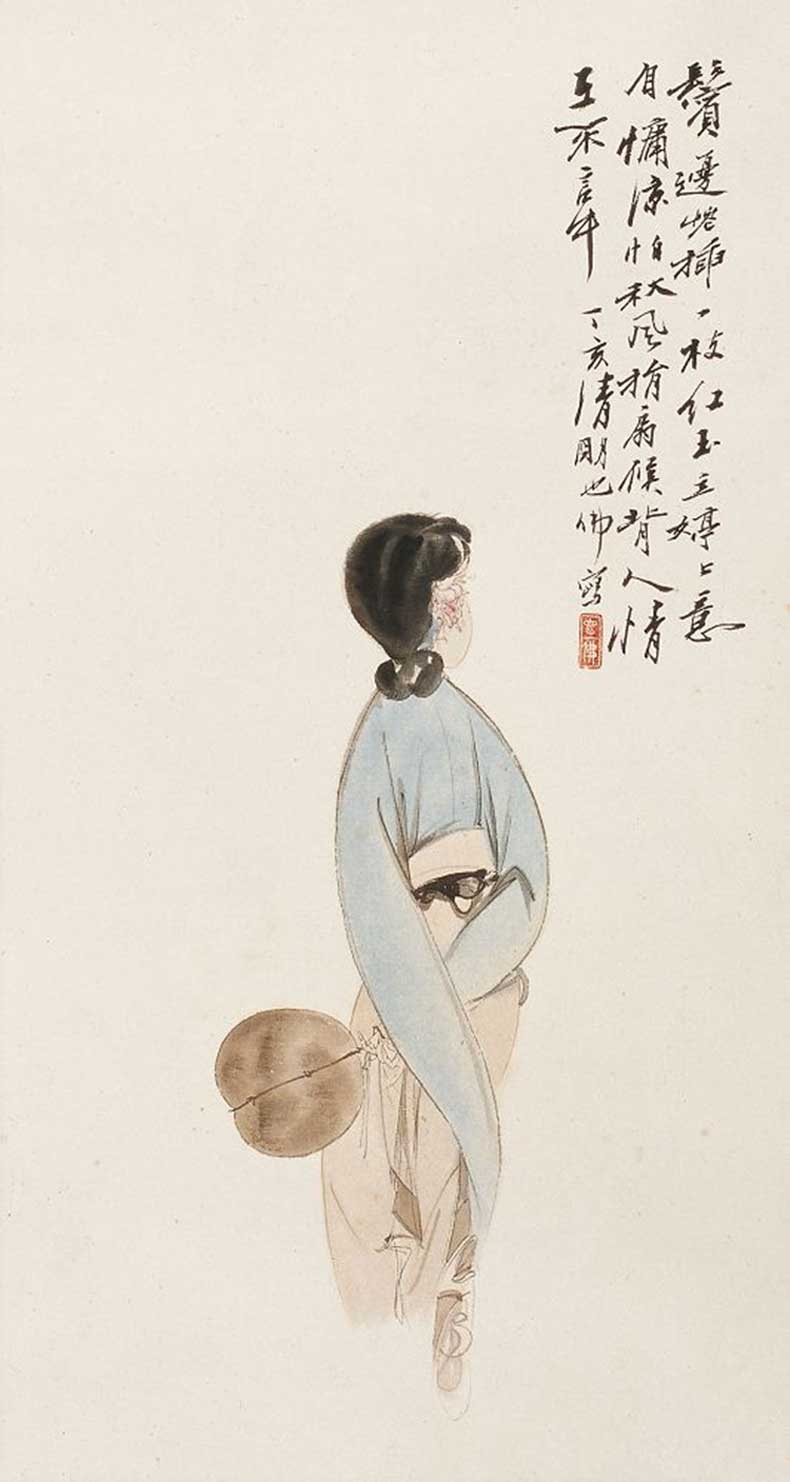 鬢邊插一枝紅玉立婷〻意
自慵涼怕秋風捐扇候背人情
不言中 丁亥清明也佛寫